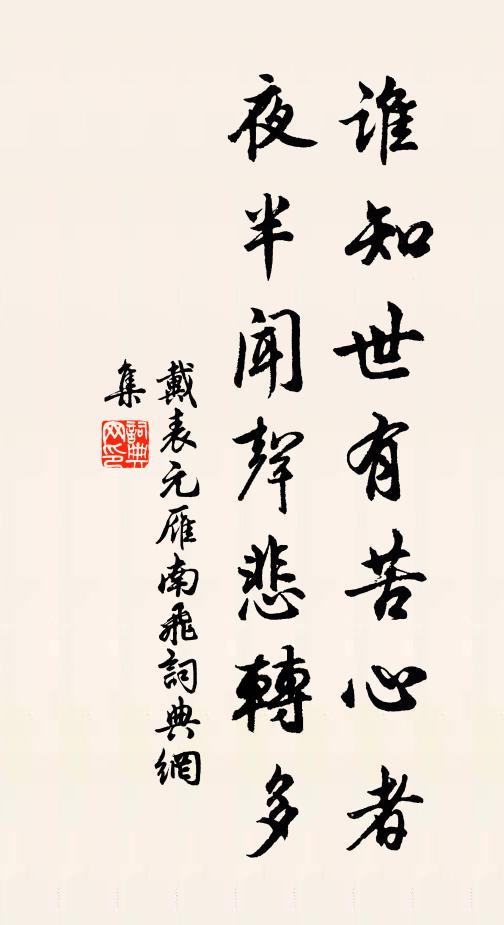 谁知世有苦心者
夜半闻聲悲轉多
戴表元雁南飛詞典網
集
詞典网印